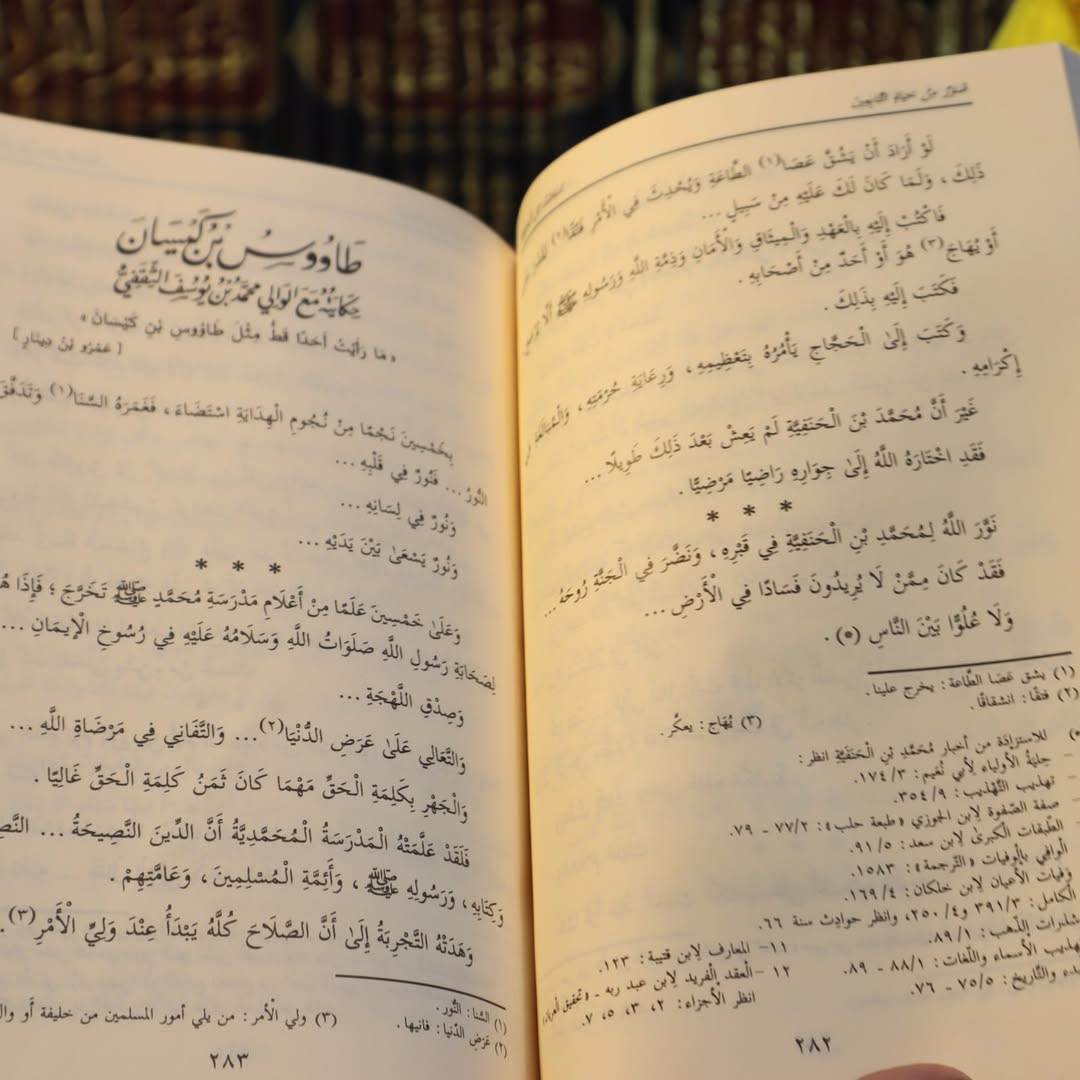 صُوَرٌ مِنْ حَيَاةِ التَّابِعِينَ
لَوْ أَرَادَ أَنْ يَشُقَّ عَصَا(١) الطَّاعَةِ وَيُحْدِثَ فِي الْأَمْرِ فَتْقًا(٢)
ذَلِكَ ، وَلَمَا كَانَ لَكَ عَلَيْهِ مِنْ سَبِيلٍ ...
فَاكْتُبْ إِلَيْهِ بِالْعَهْدِ وَالْمِيثَاقِ وَالْأَمَانِ وَذِمَّةِ اللَّهِ وَرَسُولِهِ ﷺ
أَوْ يُهَاجَ(٣) هُوَ أَوْ أَحَدٌ مِنْ أَصْحَابِهِ .
فَكَتَبَ إِلَيْهِ بِذَلِكَ .
وَكَتَبَ إِلَىٰ الْحَجَّاجِ يَأْمُرُهُ بِتَعْظِيمِهِ ، وَرِعَايَةِ حُرْمَتِهِ ، وَالْمُبَالَغَةِ
إِكْرَامِهِ .
غَيْرَ أَنَّ مُحَمَّدَ بْنَ الْحَنَفِيَّةِ لَمْ يَعِشْ بَعْدَ ذَلِكَ طَوِيلًا ...
فَقَدِ اخْتَارَهُ اللَّهُ إِلَىٰ جِوَارِهِ رَاضِيًا مَرْضِيًّا .
* * *
نَوَّرَ اللَّهُ لِمُحَمَّدِ بْنِ الْحَنَفِيَّةِ فِي قَبْرِهِ ، وَنَضَّرَ فِي الْجَنَّةِ رُوحَهُ ...
فَقَدْ كَانَ مِمَّنْ لَا يُرِيدُونَ فَسَادًا فِي الْأَرْضِ ...
وَلَا عُلُوًّا بَيْنَ النَّاسِ (*) .
(١) يشق عَصَا الطَّاعة : يخرج علينا .
(٢) فتقًا : انشقاقًا .
(٣) يُهَاج : يعكَّر .
(*) للاستزادَة من أخبار مُحَمَّدِ بْنِ الْحَنَفِيَّةِ انظر :
حِليَةُ الأولياء لأبي نُعَيم : ١٧٤/٣.
تهذيب التَّهذيب : ٣٥٤/٩.
صفة الصَّفوة لابن الجوزي «طبعة حلب» : ٧٧/٢ - ٧٩.
الطَّبقات الكبرىٰ لابن سعد : ٩١/٥.
الوافي بالوفيات «التَّرجمة» : ١٥٨٣.
وفيات الأعيان لابن خلكان : ١٦٩/٤.
الكامل : ٣٩١/٣ و٢٥٠/٤، وانظر حوادِث سنة ٦٦.
شذرات الذَّهب : ٨٩/١.
تهذيب الأسماء واللّغات : ٨٨/١ - ٨٩.
البدء والتَّاريخ : ٧٥/٥ - ٧٦.
١١- المعارف لابن قتيبة : ١٢٣.
١٢ -العقد الفَريد لابن عبد ربه - «تحقيق
انظر الأجزاء : ٢، ٣، ٥، ٧.
٢٨٢
طَاوُوسُ بْنُ كَيْسَانَ
حِكَايَتُهُ مَعَ الوَالِي مُحَمَّدُ بْنُ يُوسُفَ الثَّقَفِيُّ
« مَا رَأَيْتُ أَحَدًا قَطُّ مِثْلَ طَاوُوسِ بْنِ كَيْسَانَ »
[ عَمْرُو بْنُ دِينَارٍ ]
بِخَمْسِينَ نَجْمًا مِنْ نُجُومِ الْهِدَايَةِ اسْتَضَاءَ ، فَغَمَرَهُ السَّنَا(١) وَتَدَفَّقَ
النُّورُ ... فَنُورٌ فِي قَلْبِهِ ...
وَنُورٌ فِي لِسَانِهِ ...
وَنُورٌ يَسْعَىٰ بَيْنَ يَدَيْهِ ...
* * *
وَعَلَىٰ خَمْسِينَ عَلَمًا مِنْ أَعْلَامِ مَدْرَسَةِ مُحَمَّدٍ ﷺ تَخَرَّجَ ؛ فَإِذَا
لِصَحَابَةِ رَسُولِ اللَّهِ صَلَوَاتُ اللَّهِ وَسَلَامُهُ عَلَيْهِ فِي رُسُوخِ الْإِيمَانِ ...
وَصِدْقِ اللَّهْجَةِ ...
وَالتَّعَالِي عَلَىٰ عَرَضِ الدُّنْيَا(٢)... وَالتَّفَانِي فِي مَرْضَاةِ اللَّهِ ...
وَالْجَهْرِ بِكَلِمَةِ الْحَقِّ مَهْمَا كَانَ ثَمَنُ كَلِمَةِ الْحَقِّ غَالِيًا .
فَلَقَدْ عَلَّمَتْهُ الْمَدْرَسَةُ الْمُحَمَّدِيَّةُ أَنَّ الدِّينَ النَّصِيحَةُ ...
وَكِتَابِهِ ، وَرَسُولِهِ ﷺ ، وَأَئِمَّةِ الْمُسْلِمِينَ ، وَعَامَّتِهِمْ .
وَهَدَتْهُ التَّجْرِبَةُ إِلَىٰ أَنَّ الصَّلَاحَ كُلَّهُ يَبْدَأُ عِنْدَ وَلِيِّ الْأَمْرِ(٣).
(١) السَّنا : النُّور .
(٢) عَرَضِ الدّنيا : فانيها .
(٣) ولي الْأمر : من يلي أمور المسلمين من خليفة أَو
٢٨٣